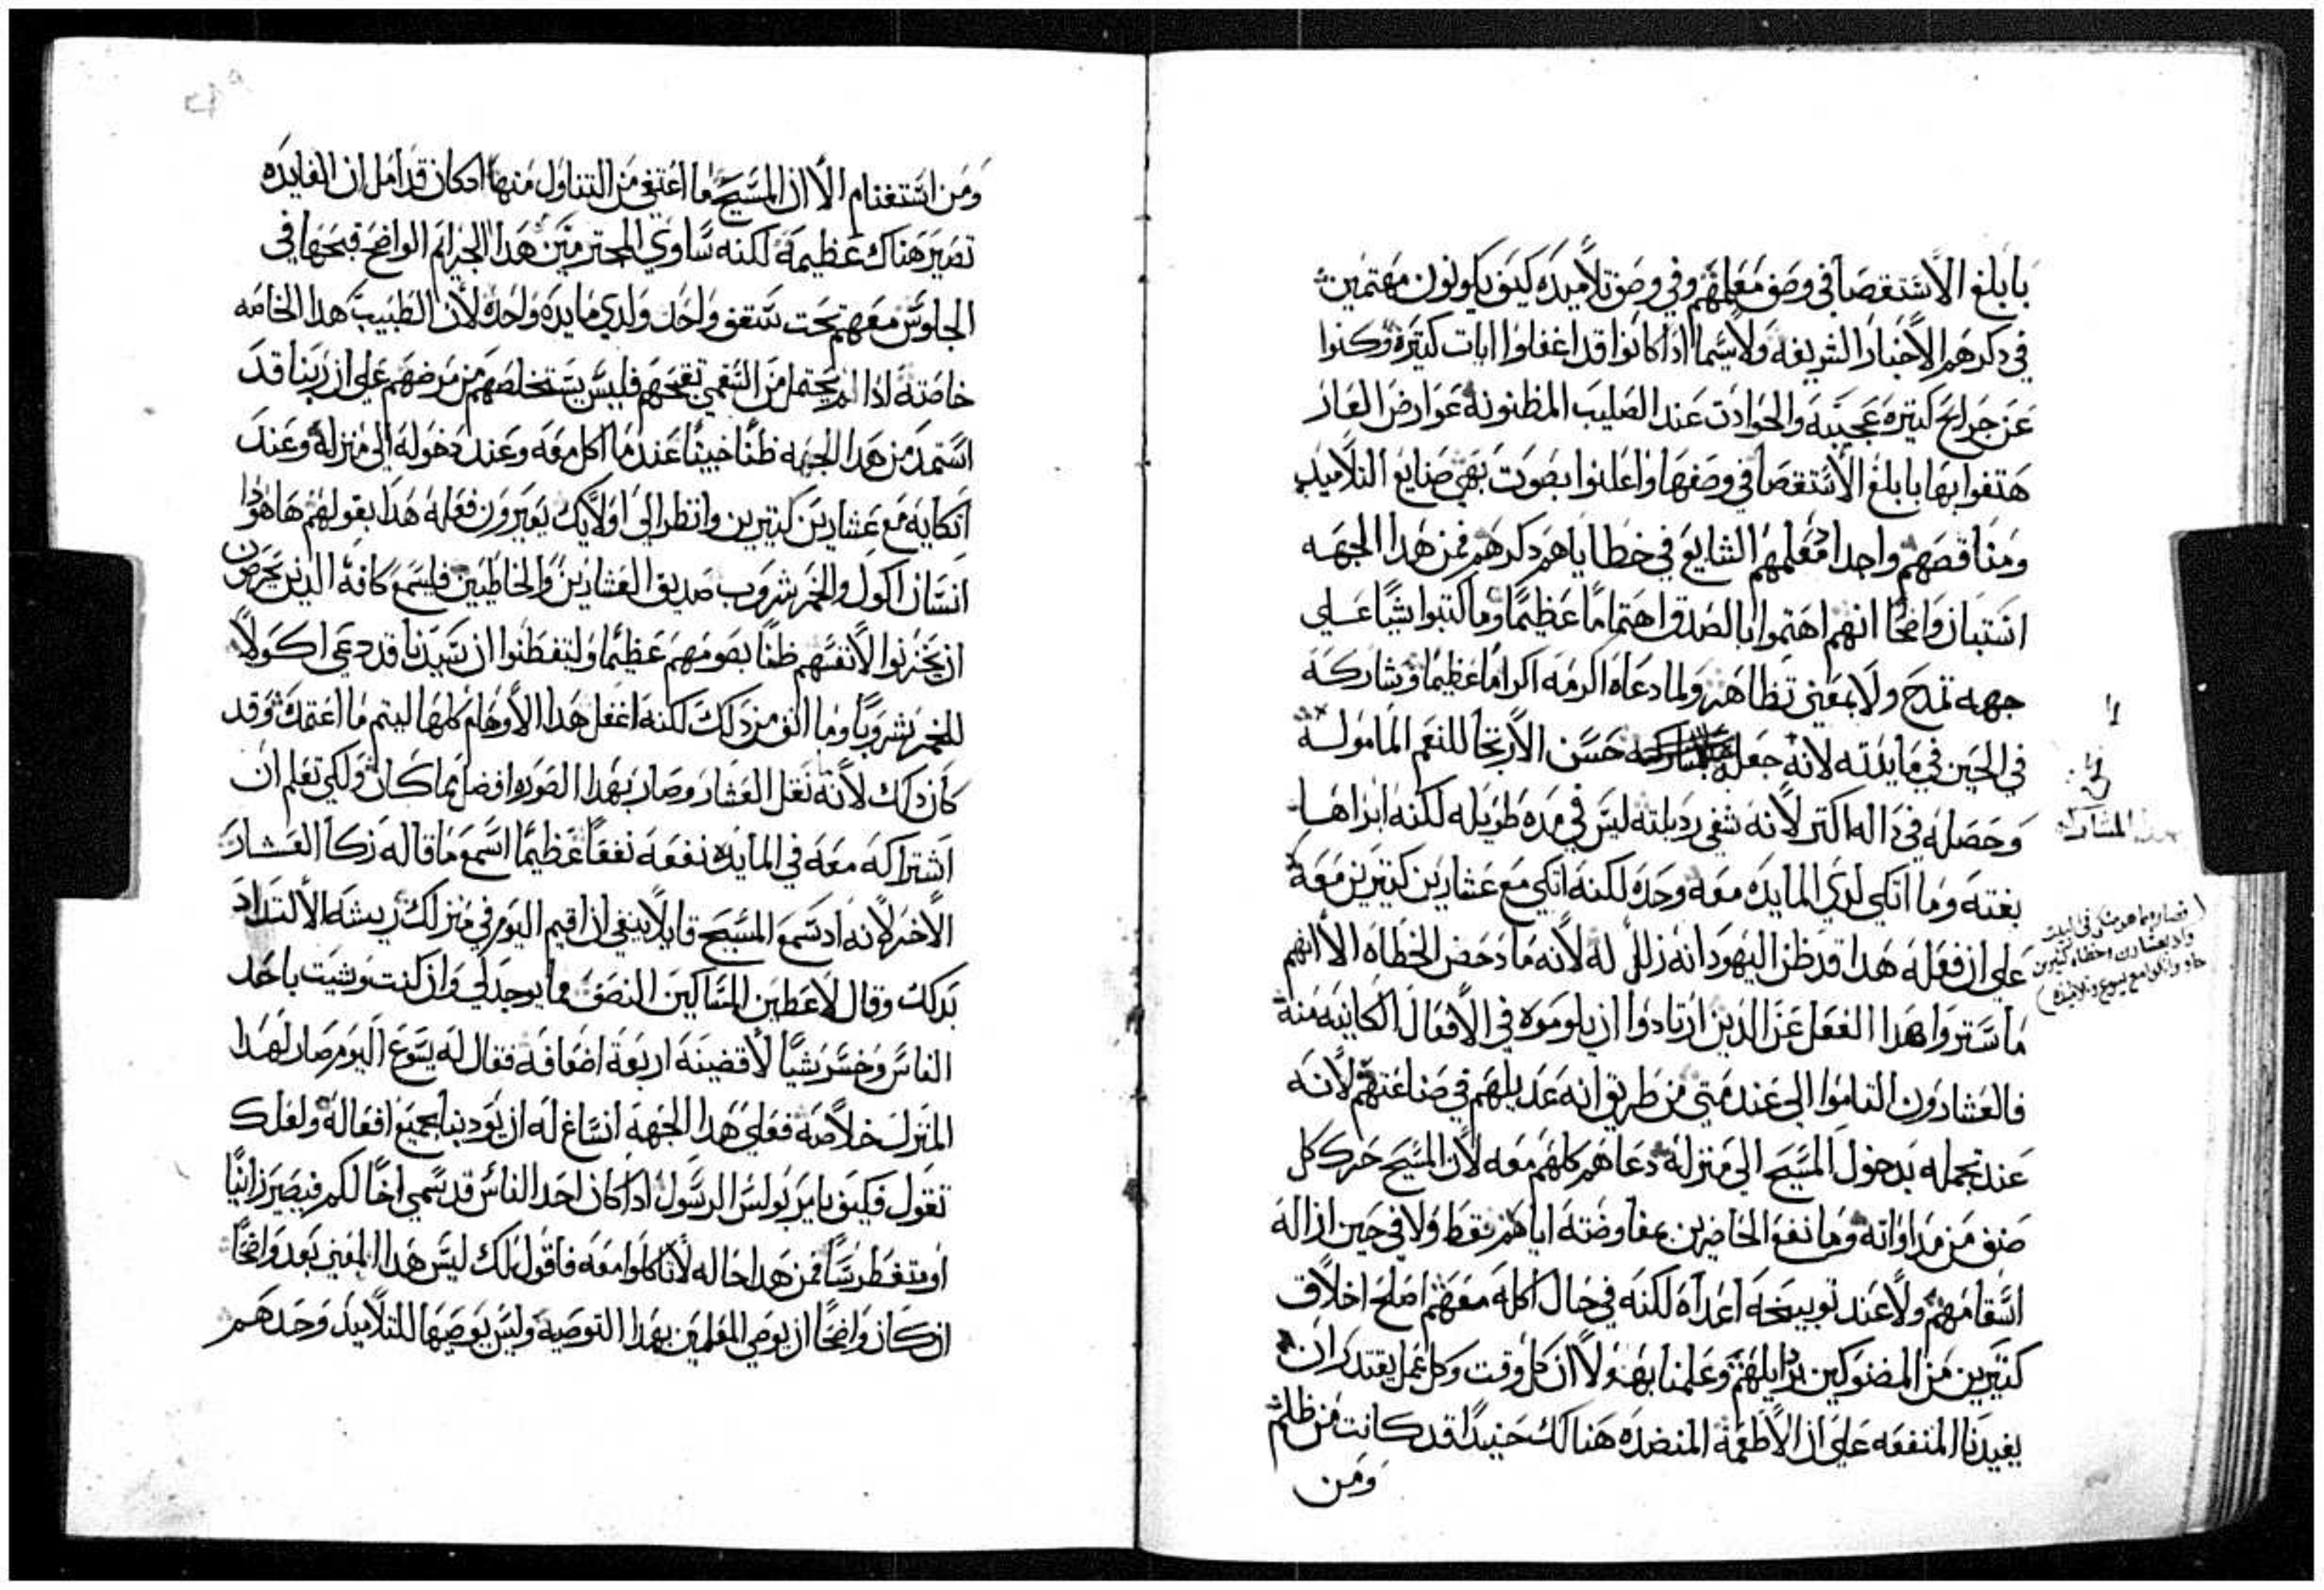 بابلغ الاستقصا في وصف معلمهم وفي وصف تلاميده كيف يكونون مهتمين
في دكرهم الاخبار الشريفه ولاسيما ادا كانوا قد اغفلوا ايات كتيرة وكنوا
عن جرايح كتيره عجيبه والحوادت عند الصليب المظنونة عوارض العار
هتفوا بها بابلغ الاستقصا في وصفها واعلنوا بصوت بهي صنايع التلاميد
ومناقصهم واجداد معلمهم الشايع في خطاياهم دكرهم فمن هدا الجهه
استبان واضحًا انهم اهتموا بالصدق اهتمامًا عظيمًا وما كتبوا شيًا علي
جهه تمدح ولا بمعني تظاهر ولما دعاه اكرمه اكرامًا عظيمًا وشاركه
في الحين في مايدته لانه جعله حسن الارتجا للنعم المامولة
وحصله في داله اكتر لانه شفي رديلته ليس في مده طويله لكنه ابراها
بغته وما اتكي لدي المايده معه وحده لكنه اتكي مع عشارين كتيرين معه
علي ان فعله هدا قد ظن اليهود انه زلل له لانه ما دحض الخطاه الا انهم
ما ستروا هدا الفعل عن الدين ارتادوا ان يلوموه في الافعال الكاينه منه
فالعشارون التاموا الي عند متي من طريق انه عديلهم في صناعتهم لانه
عند تجمله بدخول المسيح الي منزله دعاهم كلهم معه لان المسيح حرك كل
صنف من مداواته وما نفع الحاضرين بمفاوضته اياهم فقط ولا في حين ازاله
اسقامهم ولا عند توبيخه اعداه لكنه في حال اكله معهم اصلح اخلاق
كتيرين من المضنوكين بردايلهم وعلمنا بهدا ان كل وقت وكل عمل يقتدر ان
يفيدنا المنفعه علي ان الاطعمة المنضده هنالك حينيدًا قد كانت من ظلم
ومن
المشاركه
(فصار وفيما هو متكي في البيت
واد بعشارين وخطاه كتيرين
جاو واتكوا مع يسوع وتلاميده)
ومن استغنام الا ان المسيح ما اعتفي من التناول منها اد كان قد امل ان الفايده
تصير هناك عظيمة لكنه ساوي المجترمين هدا الجرايم الواضح قبحها في
الجلوس معهم تحت سقف واحد ولدي مايده واحدة لان الطبيب هدا الخاصه
خاصته ادا لم يحتمل من السقمي تقيحهم فليس يستخلصهم من مرضهم علي ان ربنا قد
استمد من هدا الجهه ظنًا خبيتًا عند ما اكل معه وعند دخوله الي منزله وعند
اتكايه مع عشارين كتيرين وانظر الي اولايك يعيرون فعله هدا بقولهم ها هودا
انسان اكول والخمر شروب صديق العشارين والخاطيين فليسمع كافة الدين يحرصون
ان يخزنوا لانفسهم ظنًا بصومهم عظيمًا وليتفطنوا ان سيدنا قد دعي اكولًا
للخمر شروبًا وما انف من دلك لكنه اغفل هدا الاوهام كلها ليتم ما اعتمده وقد
كان دلك لانه نقل العشار وصار بهدا الصوره افضل مما كان ولكي تعلم ان
اشتراكه معه في المايده نفعه نفعًا عظيمًا اسمع ما قاله زكا العشار
الاخر لانه اد سمع المسيح قايلا ينبغي ان اقيم اليوم في منزلك ريشه الالتداد
بدلك وقال لاعطين المساكين النصف مما يوجد لي وان كنت وشيت باحد
الناس وخسر شيًا لاقضينه اربعة اضعافه فقال له يسوع اليوم صار لهدا
المنزل خلاصه فعلي هدا الجهة انساغ له ان يودبنا بجميع افعاله ولعلك
تقول فكيف يامر بولس الرسول ادا كان احد الناس قد سمي اخًا لكم فيصير زانيًا
او متغطرسًا فمن هدا حاله لا تاكلوا معه فاقول لك ليس هدا المعني بعد واضحًا
ان كان واضحًا ان يوصي المعلمين بهدا التوصية وليس يوصيها للتلاميد وحدهم